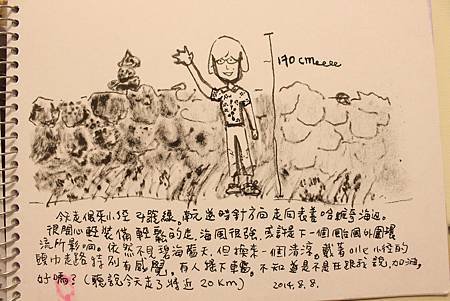 170 cmeeee
今走個彩小徑弓箭線,就逆時針方向走向表臺哈挽等海邊。
很開心輕裝備輕鬆的走,海風很強,或許是下一個颱風外圍環
流所影響。依然不見碧海藍天,但換來一個清涼。戴著
頭巾走路特別有感覺。有人搖下車窗,不知道是不是在跟我說,加油,
好嗎?(聽說今天走了將近20Km) 2014.8.8.